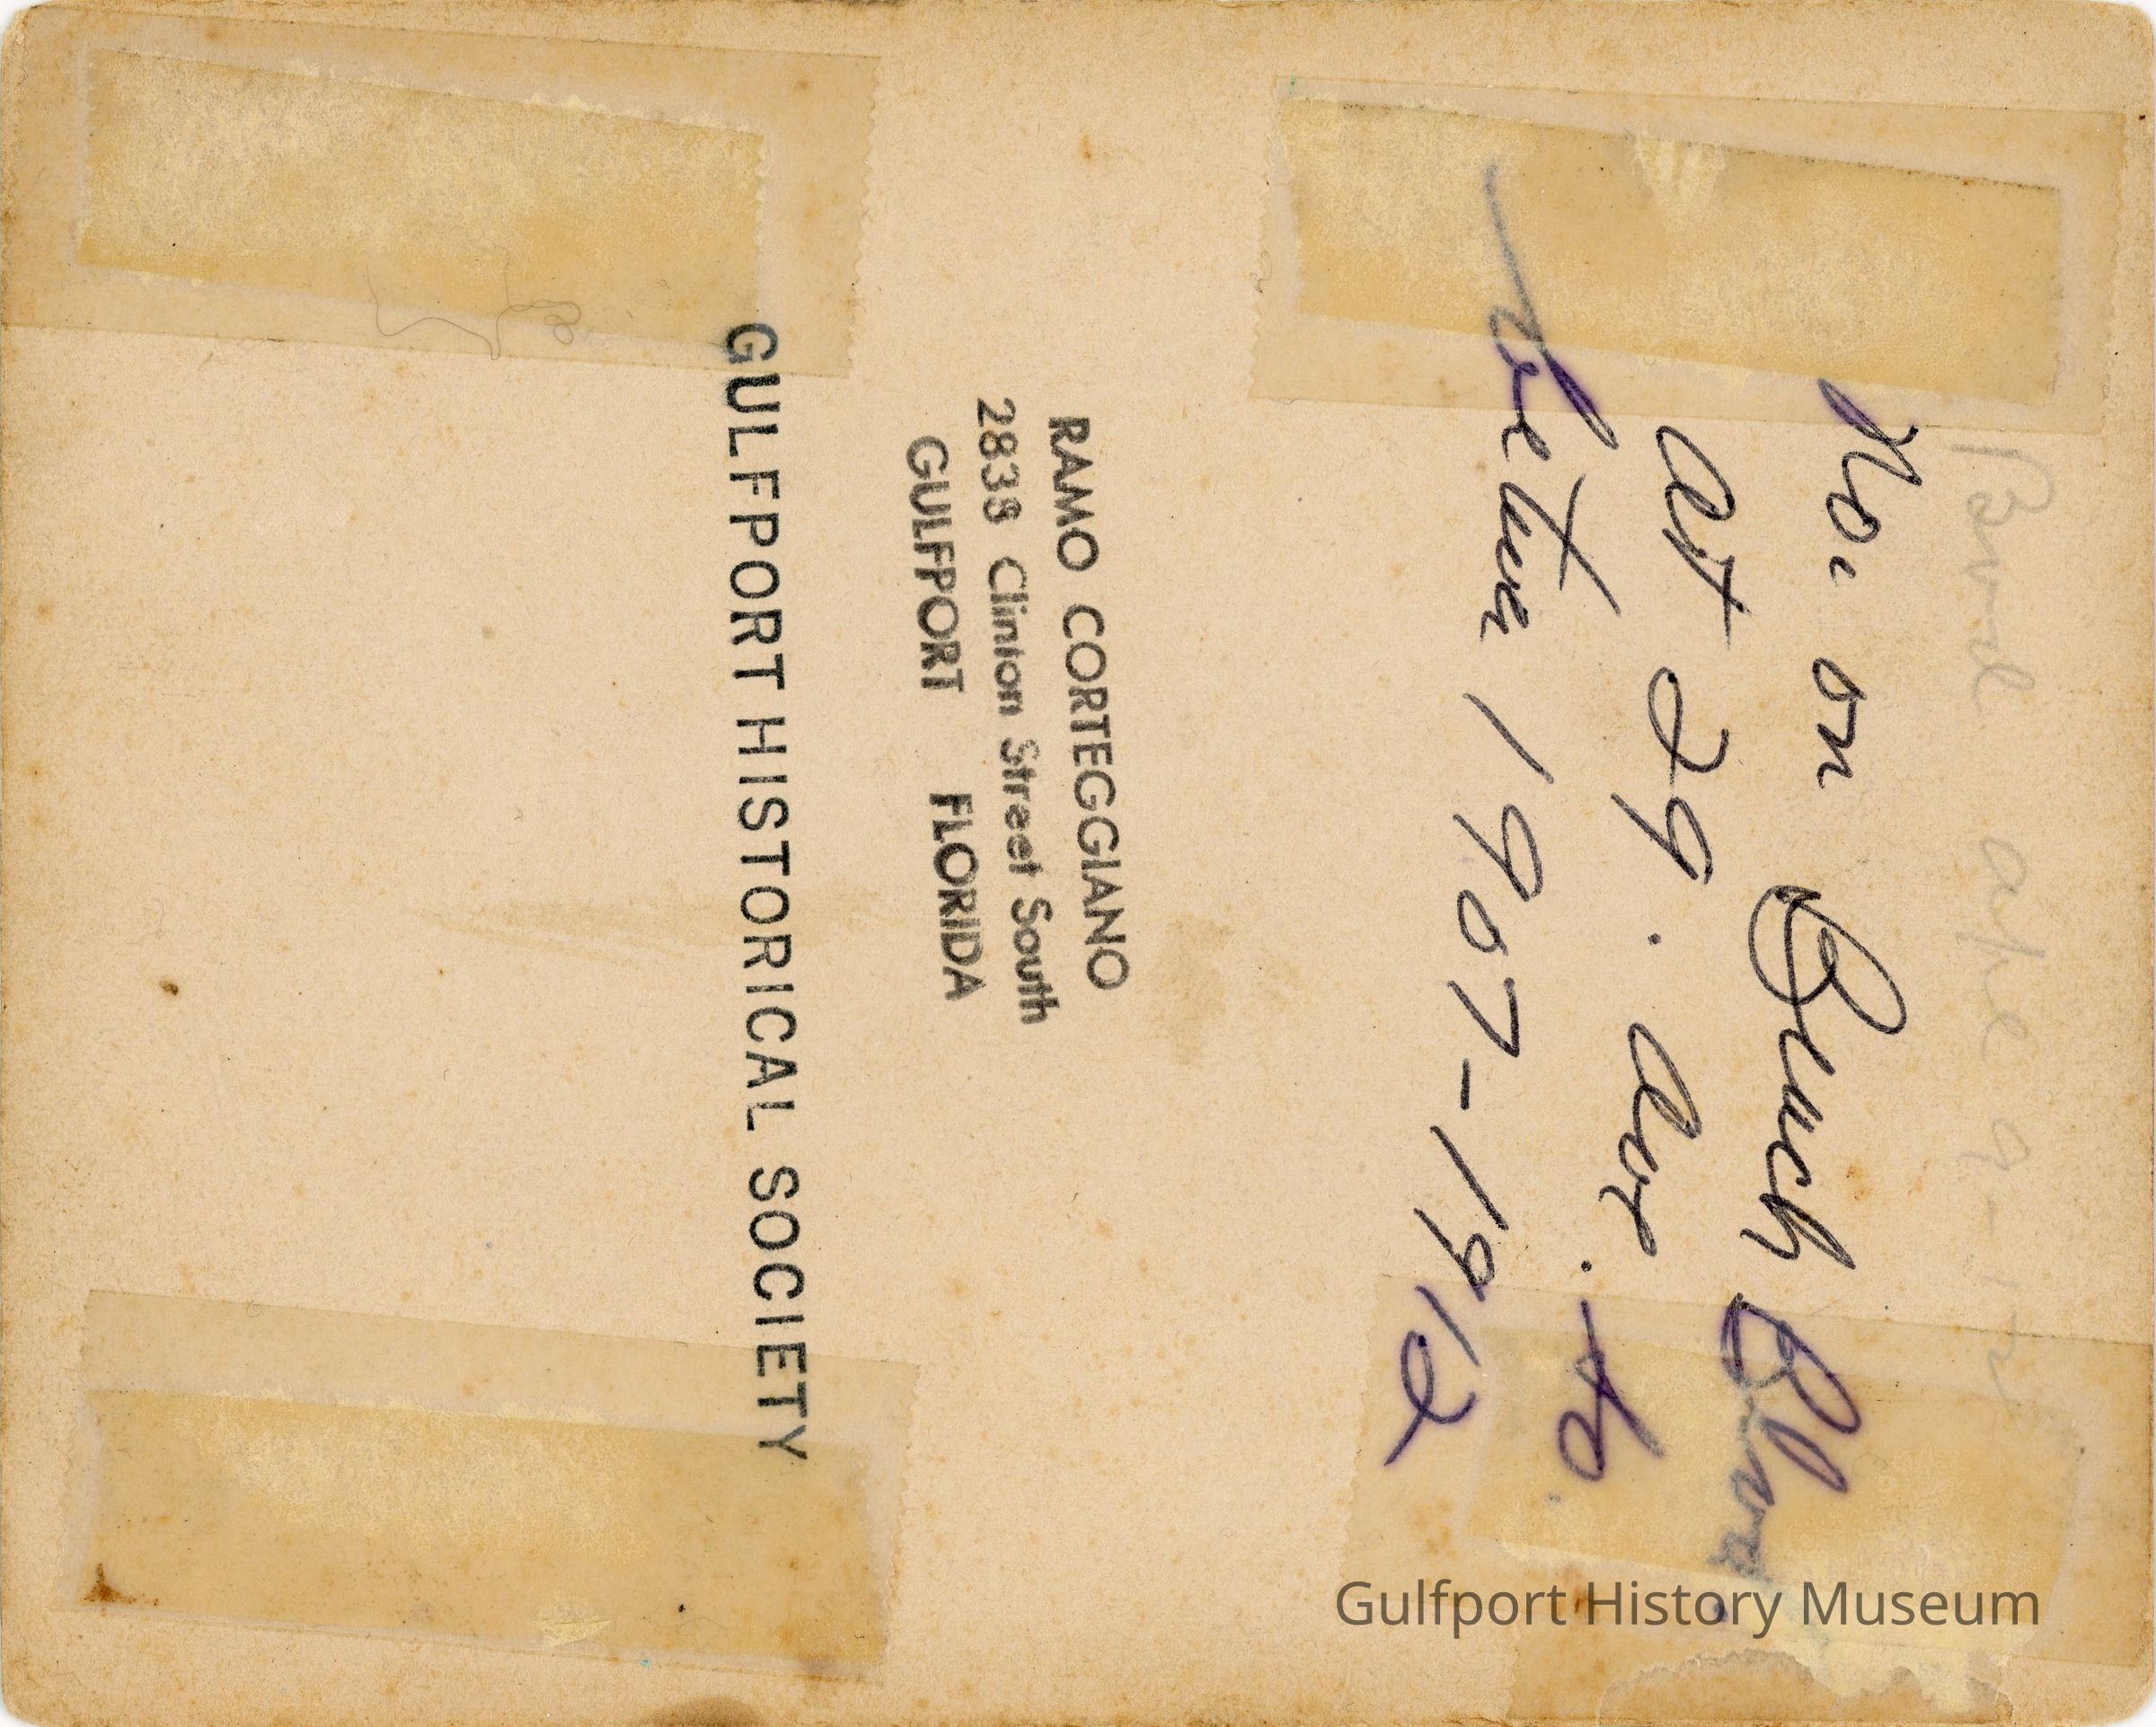 No. on Beach Blvd
at 29. Ave. to
beture 1907-1912
RAMO CORTEGGIANO
2838 Clinton Street South
GULFPORT FLORIDA
GULFPORT HISTORICAL SOCIETY
Gulfport History Museum